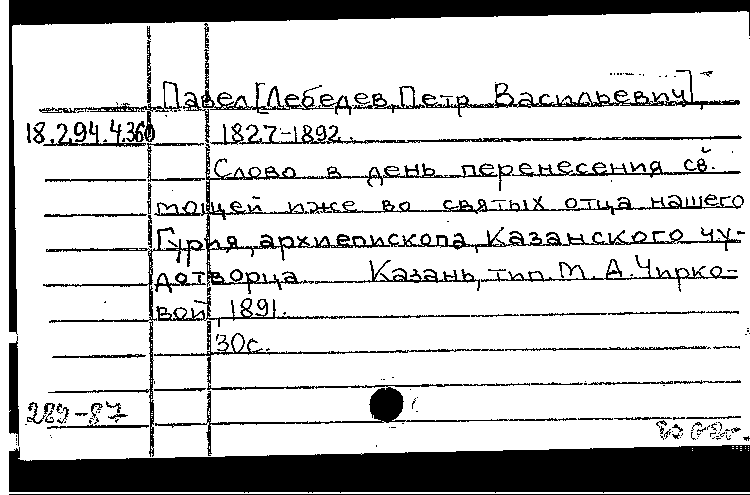 Павел [Лебедев, Петр Васильевич],
18.294.4.360 1827-1892.
Слово в день перенесения св.
мощей иже во святых отца нашего
Гурия, архиепископа, Казанского чу-
дотворца Казань, тип. М. А. Чирко-
вой, 1891.
30с.
289-87